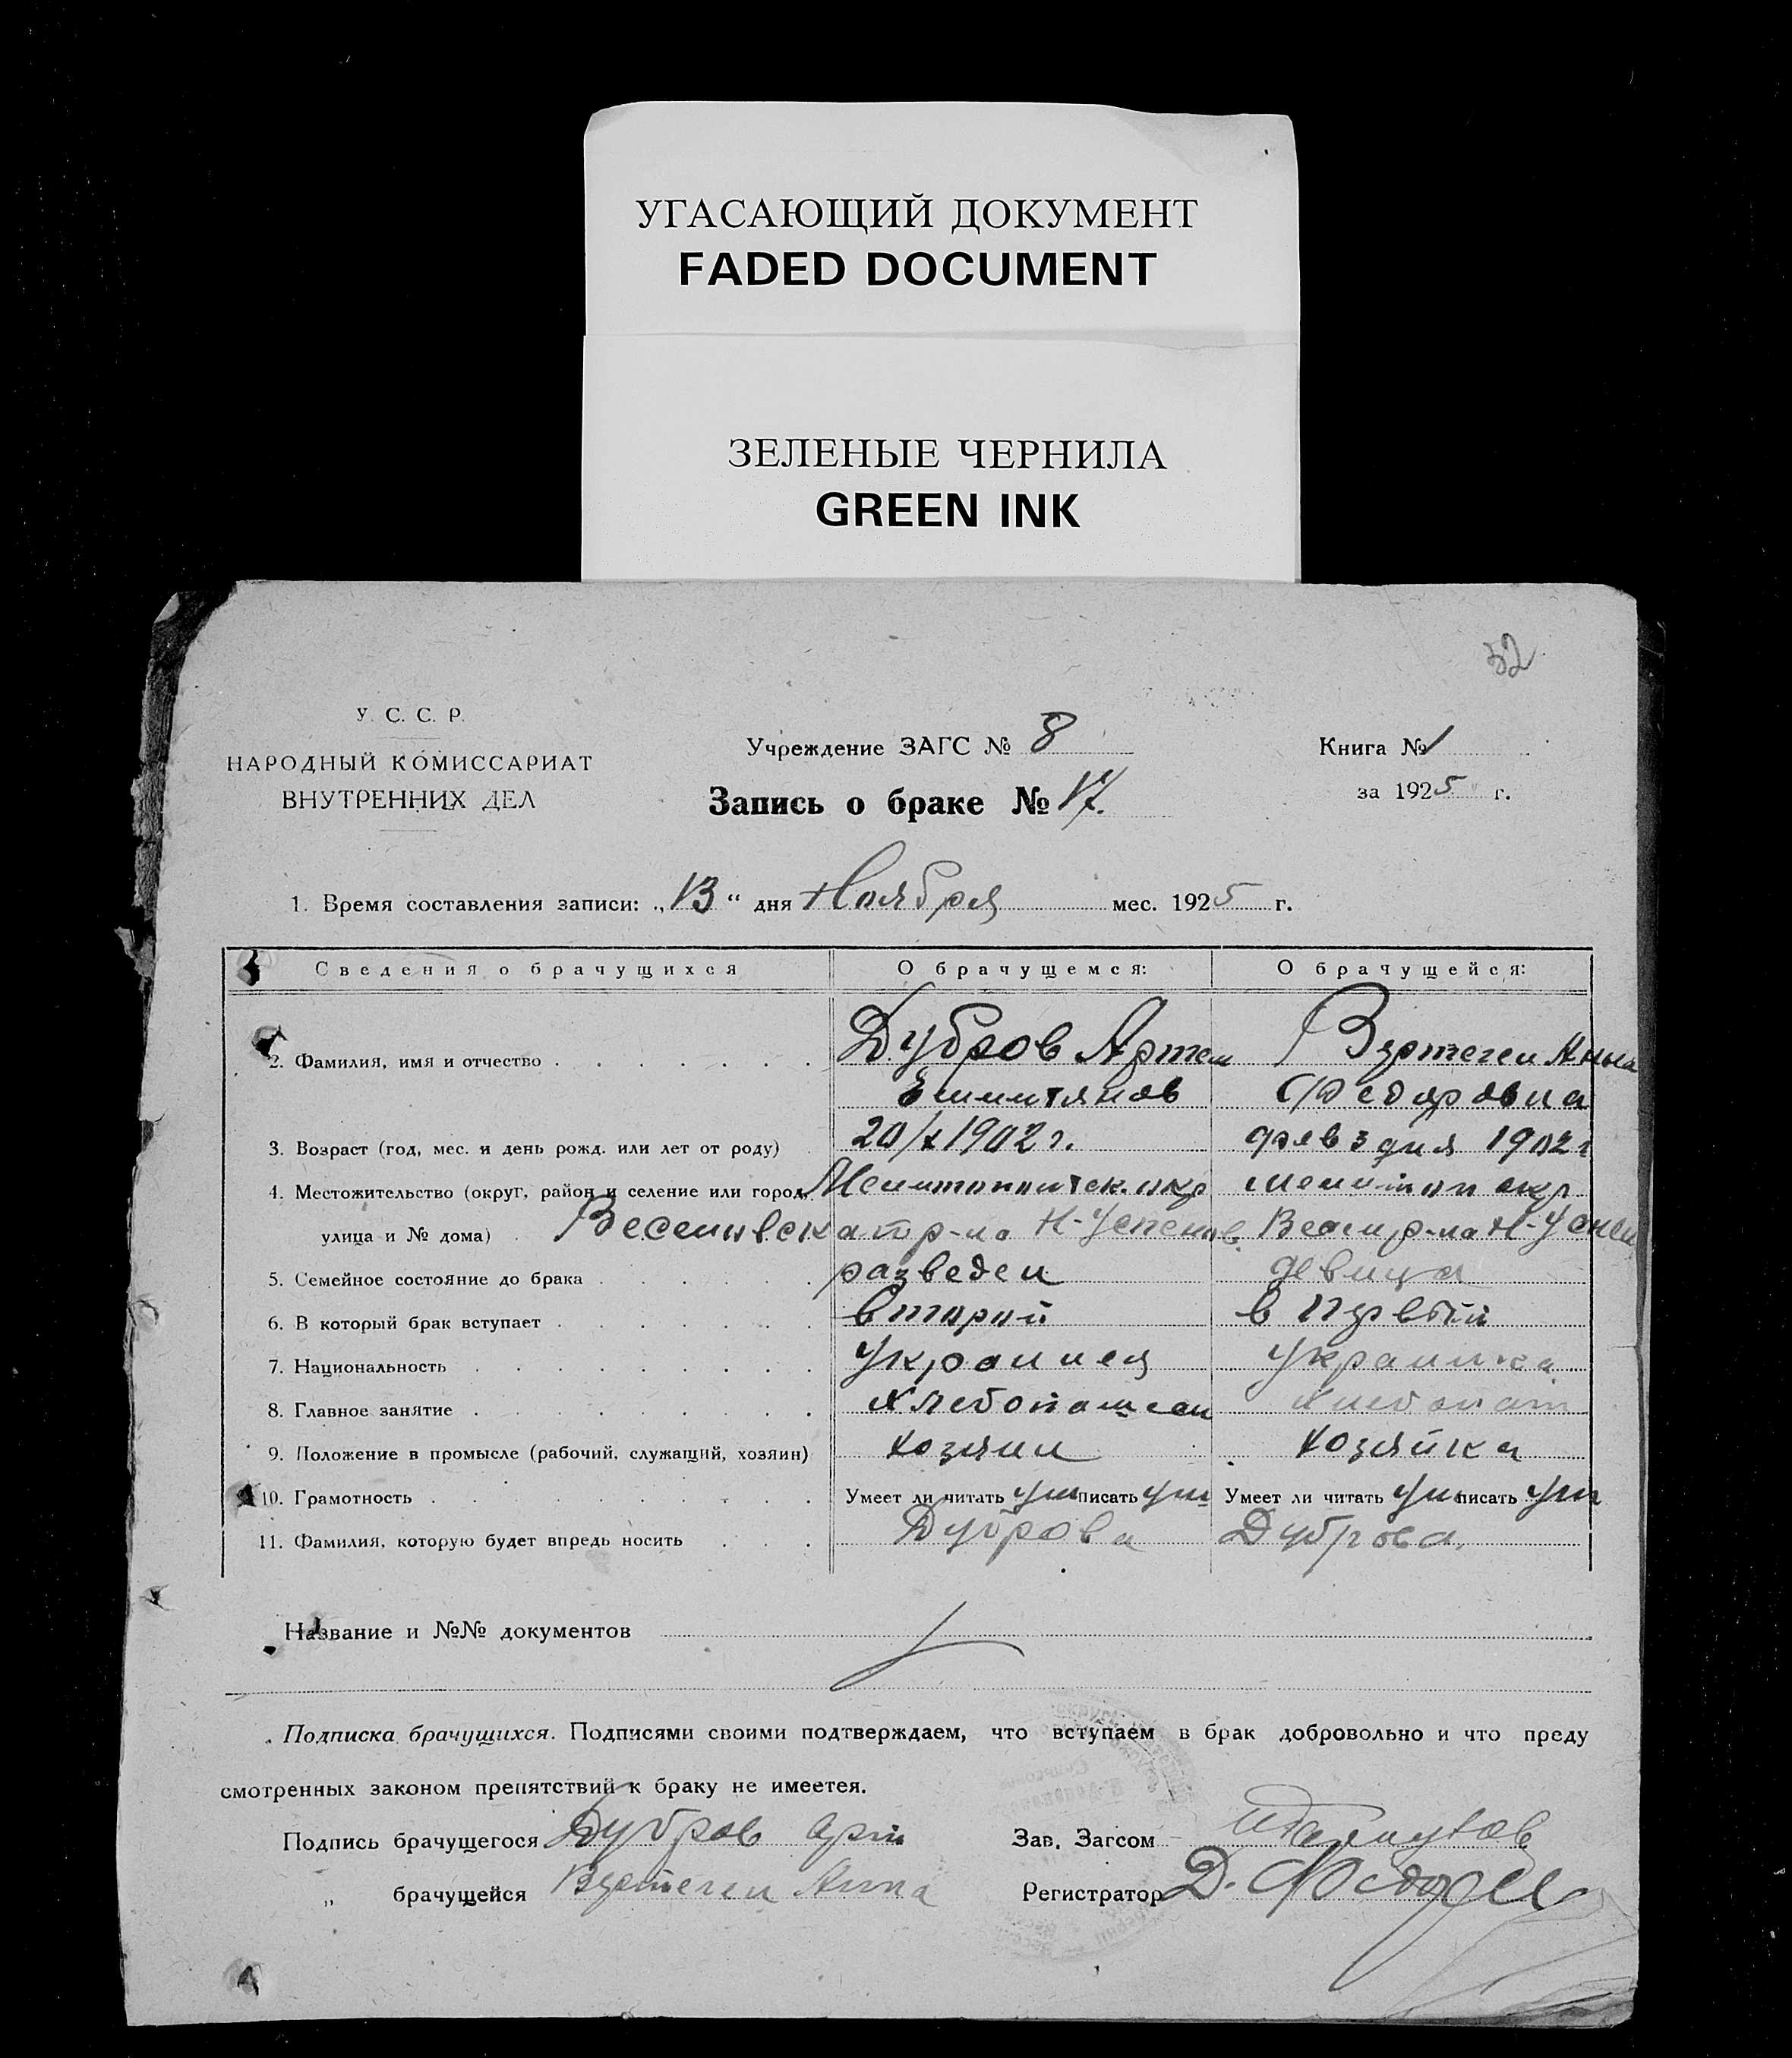 УГАСАЮЩИЙ ДОКУМЕНТ
FADED DOCUMENT
ЗЕЛЕНЫЕ ЧЕРНИЛА
GREEN INK
32
У. С. С. Р.
НАРОДНЫЙ КОМИССАРИАТ
ВНУТРЕННИХ ДЕЛ
Учреждение ЗАГС № 8
Запись о браке № 17.
Книга № 1
за 1925 г.
1. Время составления записи: „13“ дня Ноября мес. 1925 г.
Сведения о брачущихся О брачущемся: О брачущейся:
2. Фамилия, имя и отчество Дубров Артем Вертеген Анна
Федоровна
3. Возраст (год, мес. и день рожд. или лет от роду) 20/X 1902 г. фев 3 дня 1902 г
4. Местожительство (округ, район и селение или город, Мелитопольск. окр Мелитоп окр
улица и № дома) Веселовска р-на Н-Успенов. Весел р-на Н-Успен
5. Семейное состояние до брака разведен девица
6. В который брак вступает второй в первый
7. Национальность украинец украинка
8. Главное занятие хлебопашец хлебопаш
9. Положение в промысле (рабочий, служащий, хозяин) хозяин хозяйка
10. Грамотность Умеет ли читать ум писать ум Умеет ли читать ум писать ум
11. Фамилия, которую будет впредь носить Дуброва Дуброва.
Название и №№ документов
Подписка брачущихся. Подписями своими подтверждаем, что вступаем в брак добровольно и что преду
смотренных законом препятствий к браку не имеется.
Подпись брачущегося Дубров Арт Зав. Загсом
„ брачущейся Вертеген Анна Регистратор Д.